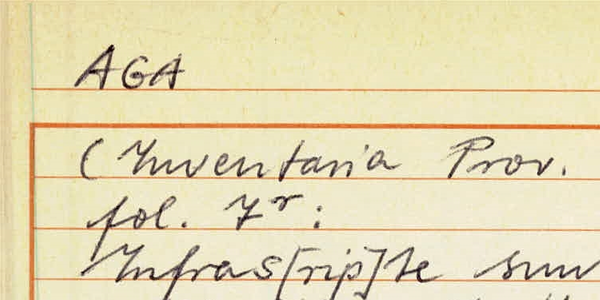 AGA
(Inventaria Prov.
fol. 7r:
Infras[rip]te sun